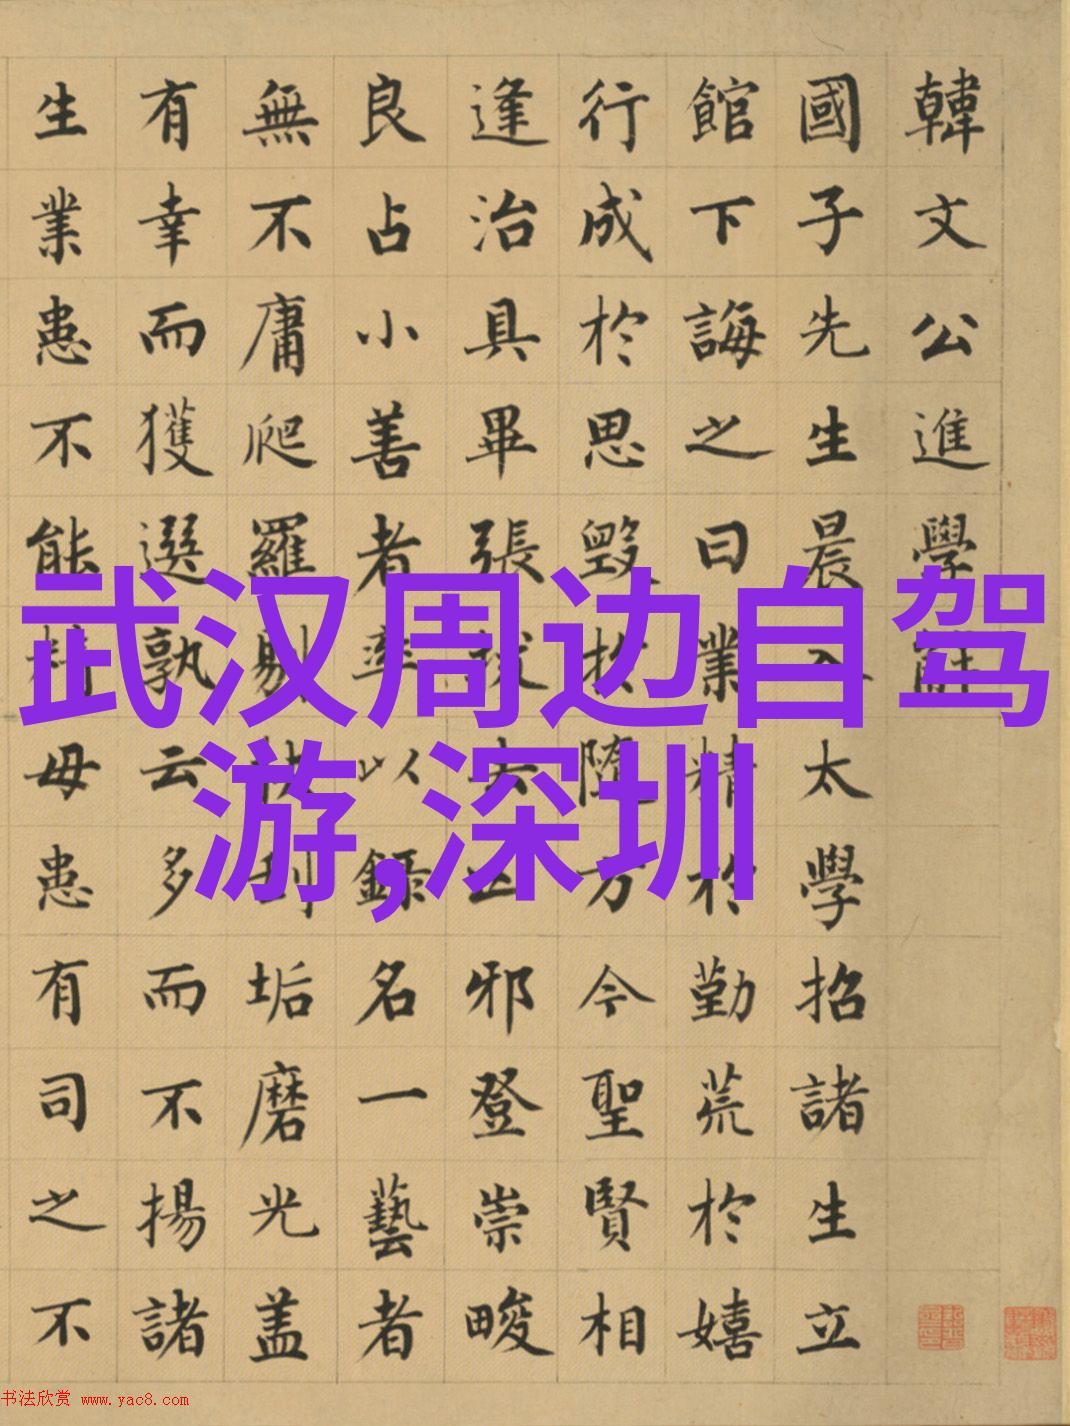 韓文公進學解
國子先生晨入太學招諸生立
館下誨之曰業精於勤荒於嬉
行成於思毀於隨方今聖賢相
逢治具畢張拔去凶邪登崇畯
良占小善者率以錄名一藝者
無不庸爬羅剔抉刮垢磨光盖
有幸而獲選孰云多而不揚諸
生業患不能精毋患有司之不
武汉周边自驾
游,深圳
书法欣赏 www.yac8.com